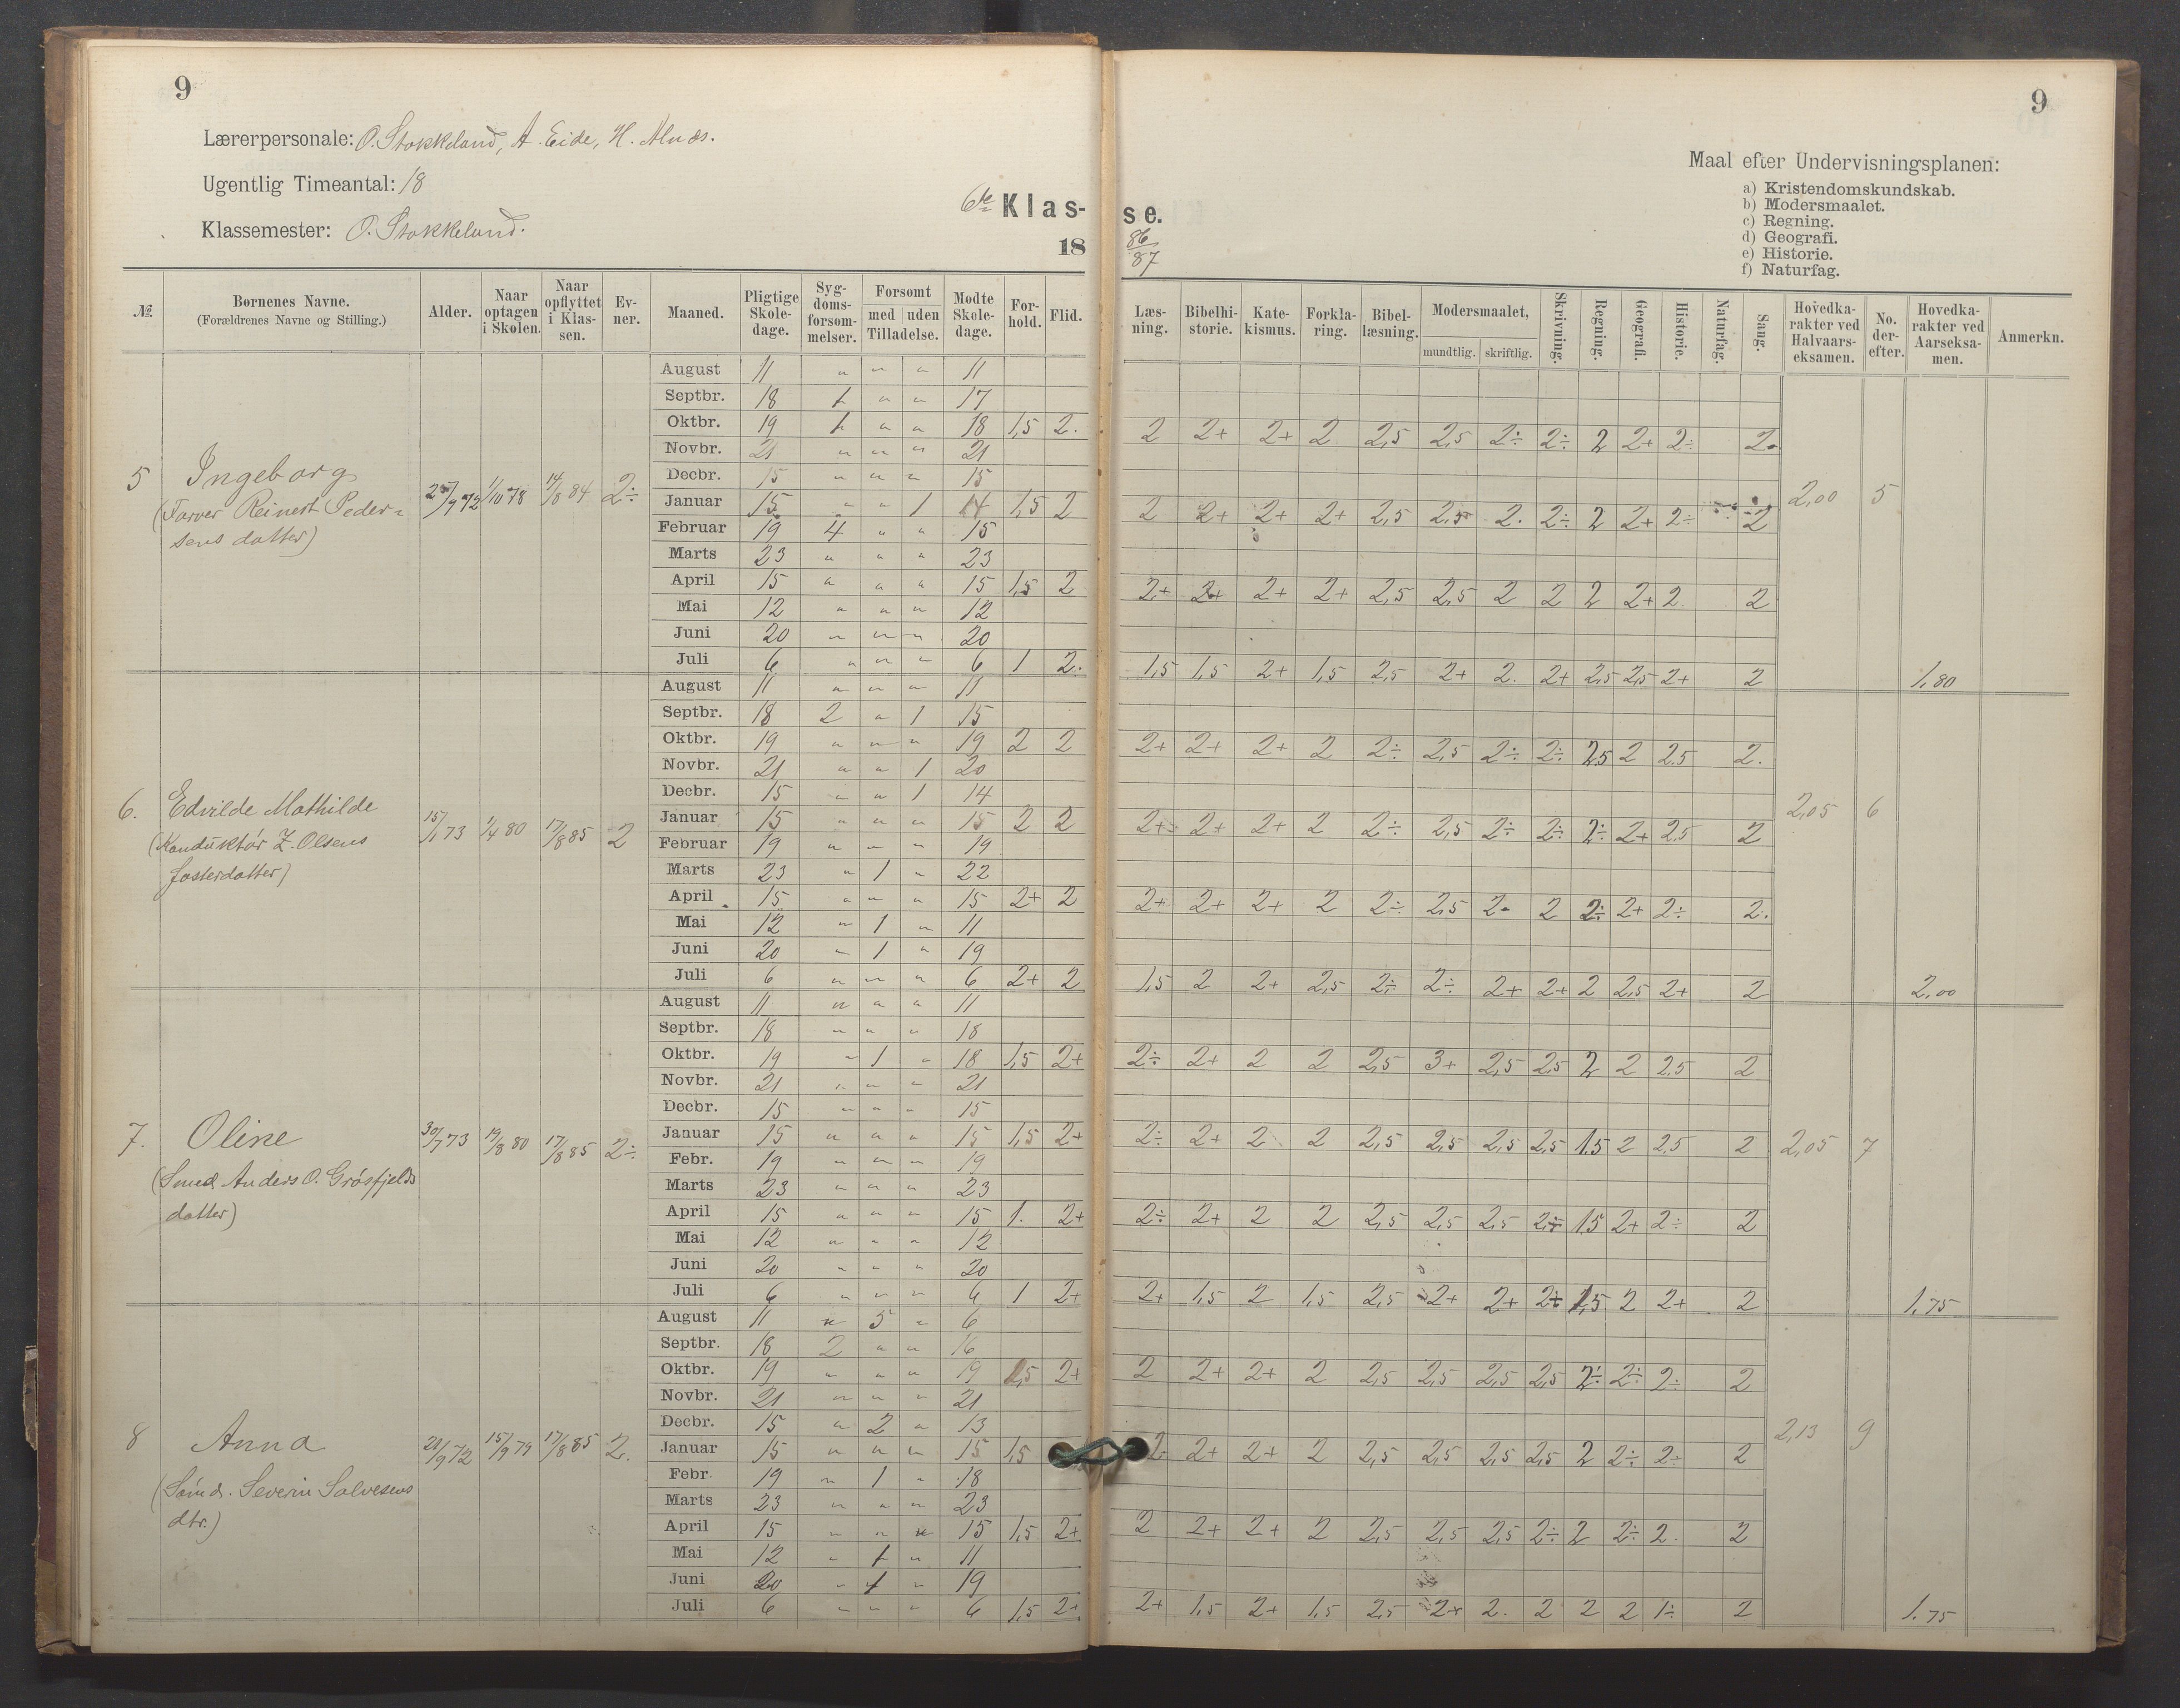 9
9
Lærerpersonale: O. Stokkeland, A. Eide, H. Alnæs.
Ugentlig Timeantal: 18
Klassemester: O. Stokkeland.
6te Klas-se.
18 86/87
Maal efter Undervisningsplanen:
a) Kristendomskundskab.
b) Modersmaalet.
c) Regning.
d) Geografi.
e) Historie.
f) Naturfag.
№. Børnenes Navne. (Forældrenes Navne og Stilling.) Alder. Naar optagen i Skolen. Naar opflyttet i Klassen. Evner. Maaned. Pligtige Skoledage. Sygdomsforsømmelser. Forsømt med uden Tilladelse. Mødte Skoledage. Forhold. Flid. Læsning. Bibelhistorie. Katekismus. Forklaring. Bibellæsning. Modersmaalet, mundtlig. skriftlig. Skrivning. Regning. Geografi. Historie. Naturfag. Sang. Hovedkarakter ved Halvaarseksamen. No. derefter. Hovedkarakter ved Aarseksamen. Anmerkn.
5 Ingeborg
(Farver Reinert Peder=
sens datter)
9 72 1/10 78 14/8 84 2÷
August 11 " " " 11
Septbr. 18 1 " " 17
Oktbr. 19 1 " " 18 1,5 2. 2 2+ 2+ 2 2,5 2,5 2÷ 2÷ 2 2+ 2÷ 2.
Novbr. 21 " " " 21
Decbr. 15 " " " 15
Januar 15 " " 1 14 1,5 2 2 2+ 2+ 2+ 2,5 2,5 2. 2÷ 2 2+ 2÷ 2 2,00 5
Februar 19 4 " " 15
Marts 23 " " " 23
April 15 " " " 15 1,5 2 2+ 2+ 2+ 2+ 2,5 2,5 2 2 2 2+ 2 2
Mai 12 " " " 12
Juni 20 " " " 20
Juli 6 " " " 6 1 2. 1,5 1,5 2+ 1,5 2,5 2+ 2. 2+ 2,5 2,5 2+ 2 1,80
6. Edvilde Mathilde
(Konduktør Z. Olsens
fosterdatter)
15/1 73 1/4 80 17/8 85 2
August 11 " " " 11
Septbr. 18 2 " 1 15
Oktbr. 19 " " " 19 2 2 2+ 2+ 2+ 2 2÷ 2,5 2÷ 2÷ 2,5 2 2,5 2.
Novbr. 21 " " 1 20
Decbr. 15 " " 1 14
Januar 15 " " " 15 2 2 2+ 2+ 2+ 2 2÷ 2,5 2÷ 2÷ 2÷ 2+ 2,5 2 2,05 6
Februar 19 " " " 19
Marts 23 " 1 " 22
April 15 " " " 15 2+ 2 2+ 2+ 2+ 2 2÷ 2,5 2. 2 2÷ 2+ 2÷ 2.
Mai 12 " 1 " 11
Juni 20 " 1 " 19
Juli 6 " " " 6 2+ 2 1,5 2 2+ 2,5 2÷ 2÷ 2+ 2+ 2 2,5 2+ 2 2,00
7. Oline
(Smed Anders O. Grøsfjelds
datter)
30/7 73 19/8 80 17/8 85 2÷
August 11 " " " 11
Septbr. 18 " " " 18
Oktbr. 19 " 1 " 18 1,5 2+ 2÷ 2+ 2 2 2,5 3+ 2,5 2,5 2 2 2,5 2
Novbr. 21 " " " 21
Decbr. 15 " " " 15
Januar 15 " " " 15 1,5 2+ 2÷ 2+ 2 2 2,5 2,5 2,5 2,5 1,5 2 2,5 2 2,05 7
Febr. 19 " " " 19
Marts 23 " " " 23
April 15 " " " 15 1. 2+ 2÷ 2+ 2 2 2,5 2,5 2,5 2÷ 1,5 2+ 2÷ 2
Mai 12 " " " 12
Juni 20 " " " 20
Juli 6 " " " 6 1 2+ 2+ 1,5 2 1,5 2,5 2+ 2+ 2+ 1,5 2 2+ 2 1,75
8 Anna
(Sømd. Severin Salvesens
dtr.)
9 72 15/9 79 17/8 85 2.
August 11 " 5 " 6
Septbr. 18 2 " " 16
Oktbr. 19 " " " 19 1,5 2+ 2 2+ 2+ 2 2,5 2,5 2,5 2,5 2÷ 2÷ 2÷ 2
Novbr. 21 " " " 21
Decbr. 15 " 2 " 13
Januar 15 " " " 15 1,5 2 2+ 2+ 2 2,5 2,5 2,5 2,5 2 2÷ 2÷ 2 2,13 9
Febr. 19 " 1 " 18
Marts 23 " " " 23
April 15 " " " 15 1,5 2+ 2 2+ 2+ 2 2,5 2,5 2,5 2÷ 2 2÷ 2. 2
Mai 12 " 1 " 11
Juni 20 " 1 " 19
Juli 6 " " " 6 1,5 2+ 2+ 1,5 2+ 1,5 2,5 2+ 2. 2 2 2 1÷ 2 1,75